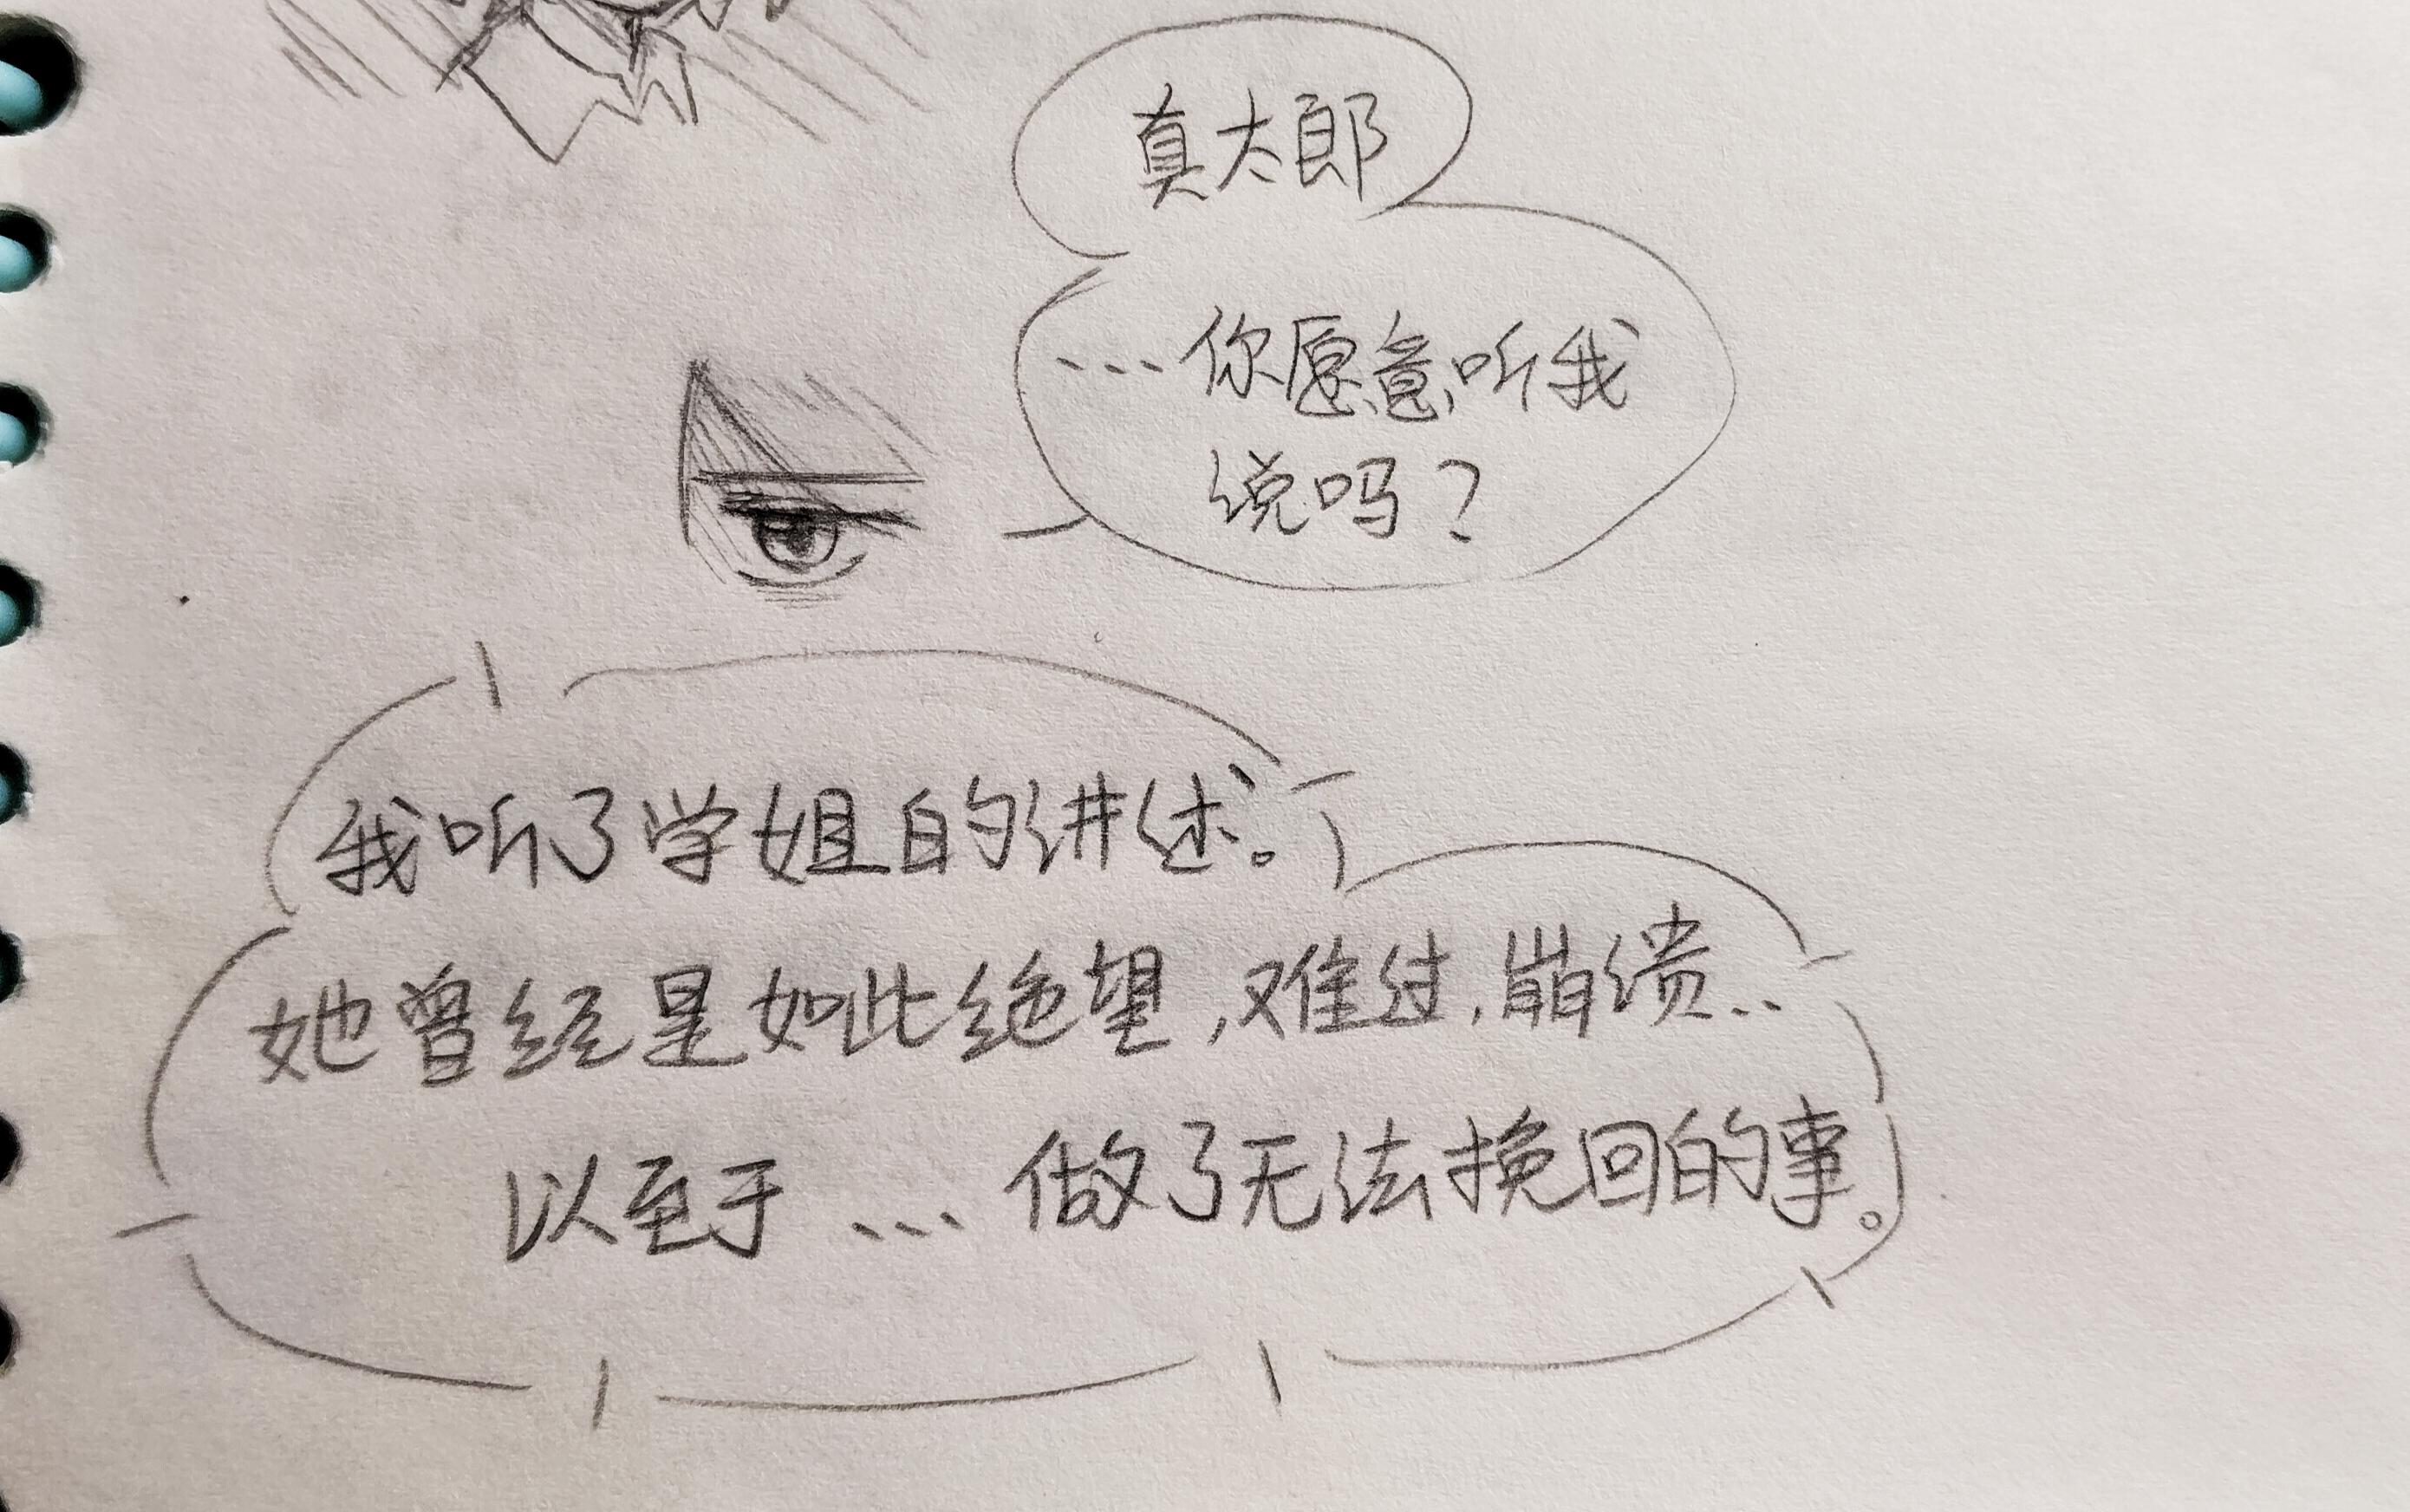 真太郎
...你愿意听我
说吗？
我听了学姐的讲述。
她曾经是如此绝望,难过,崩溃..
以至于...做了无法挽回的事。